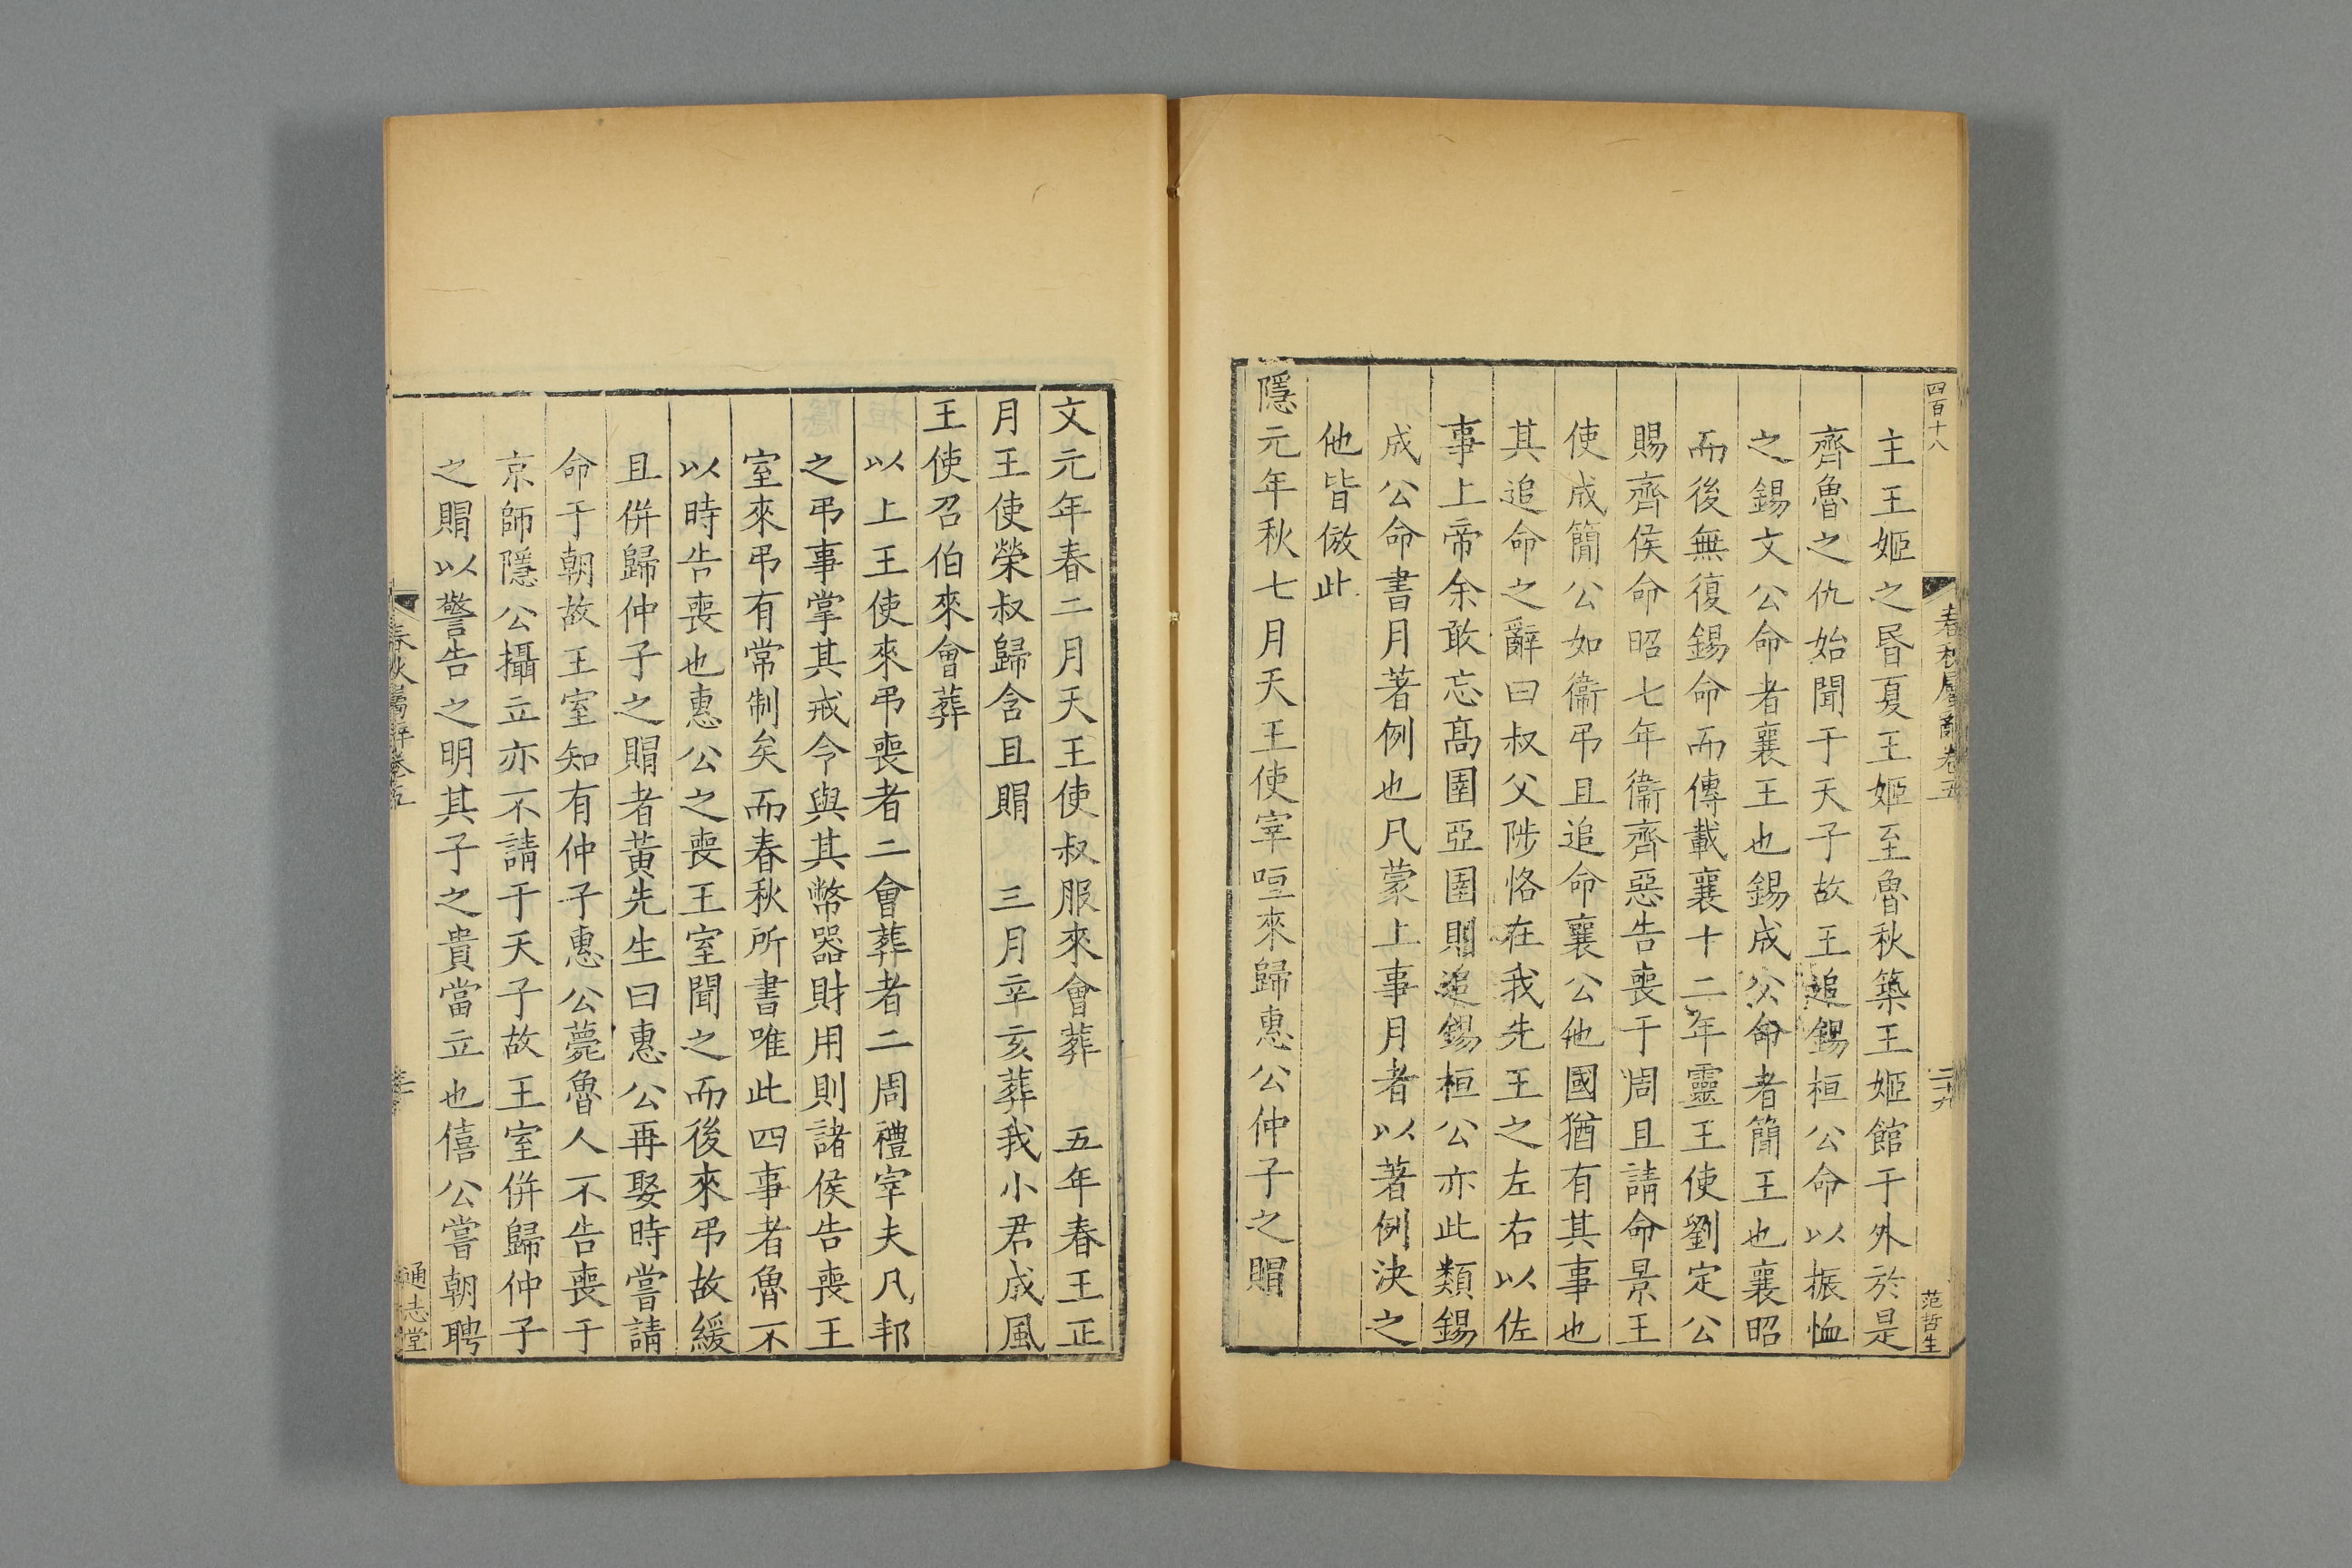 四百十八
春秋屬辭卷五
二十九
范哲生
主王姬之昬夏王姬至魯秋築王姬館于外於是
齊魯之仇始聞于天子故王追錫桓公命以振恤
之錫文公命者襄王也錫成公命者簡王也襄昭
而後無復錫命而傳載襄十二年靈王使劉定公
賜齊侯命昭七年衞齊惡告喪于周且請命景王
使成簡公如衞弔且追命襄公他國猶有其事也
其追命之辭曰叔父陟恪在我先王之左右以佐
事上帝余敢忘髙圉亞圉則追錫桓公亦此類錫
成公命書月著例也凡蒙上事月者以著例決之
他皆倣此
隱元年秋七月天王使宰咺來歸惠公仲子之賵
文元年春二月天王使叔服來會葬　五年春王正
月王使榮叔歸含且賵　三月辛亥葬我小君成風
王使召伯來會葬
以上王使來弔喪者二會葬者二周禮宰夫凡邦
之弔事掌其戒令與其幣器財用則諸侯告喪王
室來弔有常制矣而春秋所書唯此四事者魯不
以時告喪也惠公之喪王室聞之而後來弔故緩
且併歸仲子之賵者黃先生曰惠公再娶時嘗請
命于朝故王室知有仲子惠公薨魯人不告喪于
京師隱公攝立亦不請于天子故王室併歸仲子
之賵以警告之明其子之貴當立也僖公嘗朝聘
春秋屬辭卷五
通志堂